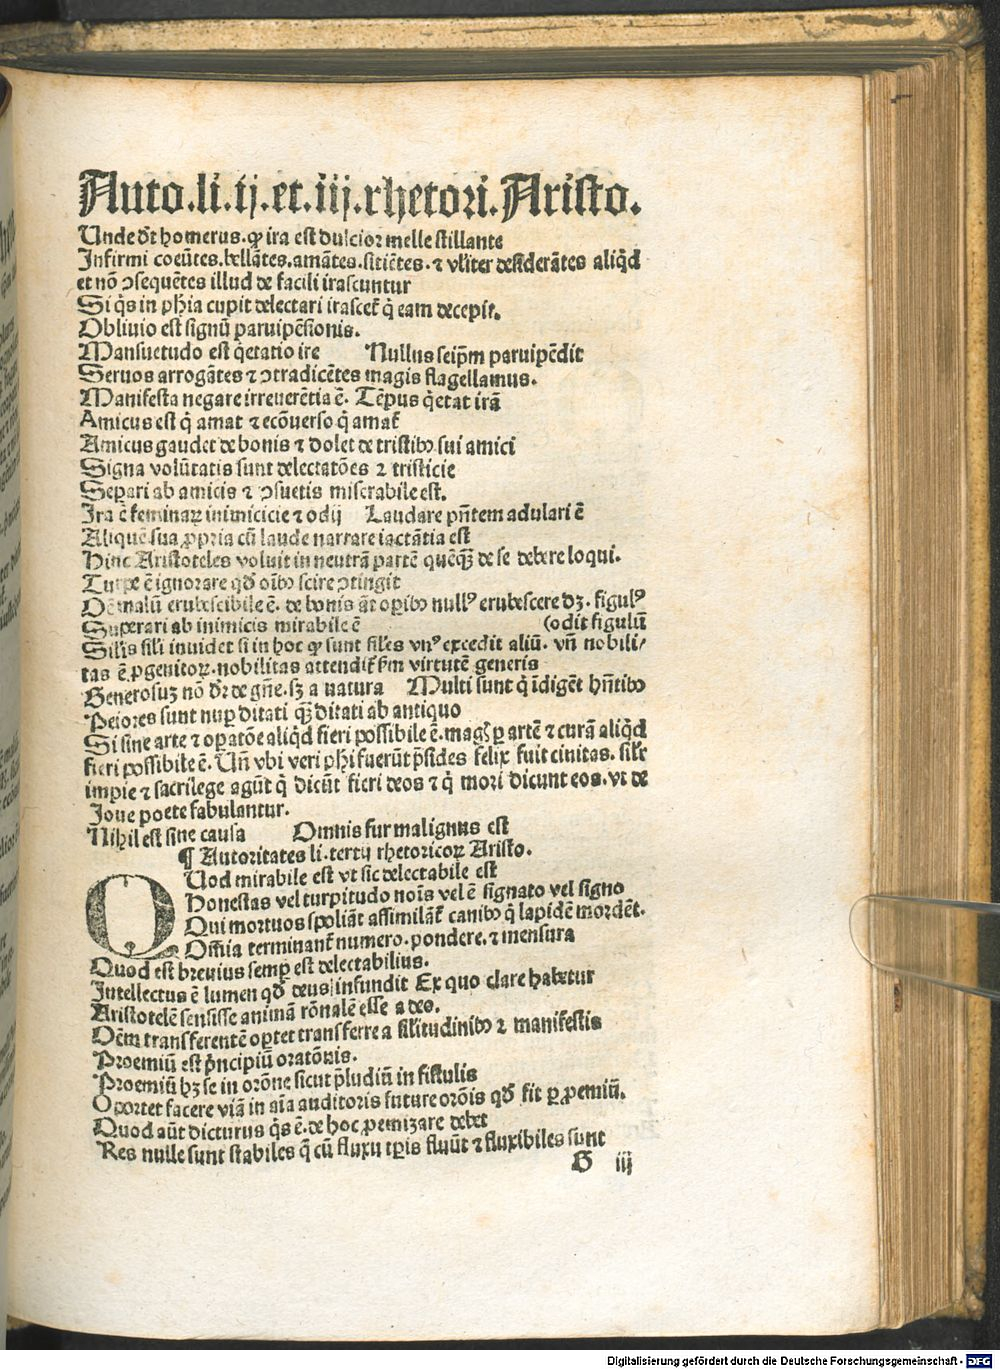 Auto.li.ij.et.iij.rhetori.Aristo.
Unde dr̄t homerus. qꝫ ira est dulcior melle stillante
Infirmi coeūtes. bellātes. amātes. sitiētes. ⁊ vl̄iter desiderātes aliqd̄
et nō ↄsequētes illud de facili irascuntur
Si q̄s in ph̄ia cupit delectari irascet᷑ q̄ eam decepit.
Obliuio est signū paruipēsionis.
Mansuetudo est q̄etatio ire Nullus seip̄m paruipēdit
Seruos arrogātes ⁊ ↄtradicētes magis flagellamus.
Manifesta negare irreuerētia ē. Tēpus q̄etat irā
Amicus est q̄ amat ⁊ ecōuerso q̄ amat᷑
Amicus gaudet de bonis ⁊ dolet de tristibꝰ sui amici
Signa volūtatis sunt delectatōes ⁊ tristicie
Separi ab amicis ⁊ ↄsuetis miserabile est.
Ira ē feminaꝝ inimicicie ⁊ odij Laudare pn̄tem adulari ē
Aliquē sua ꝓpria cū laude narrare iactātia est
Hinc Aristoteles voluit in neutrā partē quēqꝫ de se debere loqui.
Turpe ē ignorare qd̄ oībꝰ scire ↄtingit
Oē malū erubescibile ē. de bonis āt oꝑibꝰ nullꝰ erubescere dꝫ. figulꝰ
Superari ab inimicis mirabile ē (odit figulū
Silis sili inuidet si in hoc qꝫ sunt siles vnꝰ excedit aliū. vn̄ nobili/
tas ē ꝓgenitoꝝ. nobilitas attendit᷑ ſm virtutē generis
Generosuꝫ nō dr̄ de gn̄e. sꝫ a natura Multi sunt q̄ īdigēt hn̄tibꝰ
Peiores sunt nuꝑ ditati qꝫ ditati ab antiquo
Si sine arte ⁊ oꝑatōe aliqd̄ fieri possibile ē. magꝭ ꝑ artē ⁊ curā aliqd̄
fieri possibile ē. Un̄ vbi veri ph̄i fuerūt p̄sides felix fuit ciuitas. silr̄
impie ⁊ sacrilege agūt q̄ dicūt fieri deos ⁊ q̄ mori dicunt eos. vt de
Joue poete fabulantur.
Nihil est sine causa Omnis fur malignus est
¶ Autoritates li. tertij rhetoricoꝝ Aristo.
QUod mirabile est vt sic delectabile est
Honestas vel turpitudo noīs vel ē signato vel signo
Qui mortuos spoliāt assimilāt᷑ canibꝰ q̄ lapidē mordēt.
Omīa terminant᷑ numero. pondere. ⁊ mensura
Quod est breuius semꝑ est delectabilius.
Intellectus ē lumen qd̄ deus infundit Ex quo clare habetur
Aristotelē sensisse animā rōnalē esse a deo.
Oēm transferentē oꝑtet transferre a silitudinibꝰ ⁊ manifestis
Proemiū est p̄ncipiū oratōnis.
Proemiū hꝫ se in orōne sicut p̄ludiū in fistulis
Oportet facere viā in aīa auditoris future orōis qd̄ fit ꝑ ꝓemiū.
Quod aūt dicturus q̄s ē. de hoc ꝓemizare debet
Res nulle sunt stabiles q̄ cū fluxu tꝑis fluūt ⁊ fluxibiles sunt
G iij
Digitalisierung gefördert durch die Deutsche Forschungsgemeinschaft - DFG